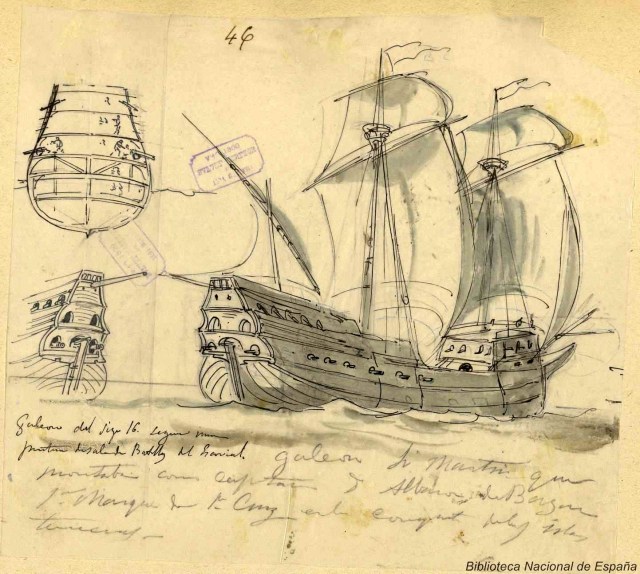 46
Galeon del siglo 16. segun una
pintura de sala de Batallas del Escorial.
galeon Sn Martin que
montaba como capitan D Alvaro de Bazan
1er Marques de Sta Cruz en la conquista de las islas
terceras
Biblioteca Nacional de España